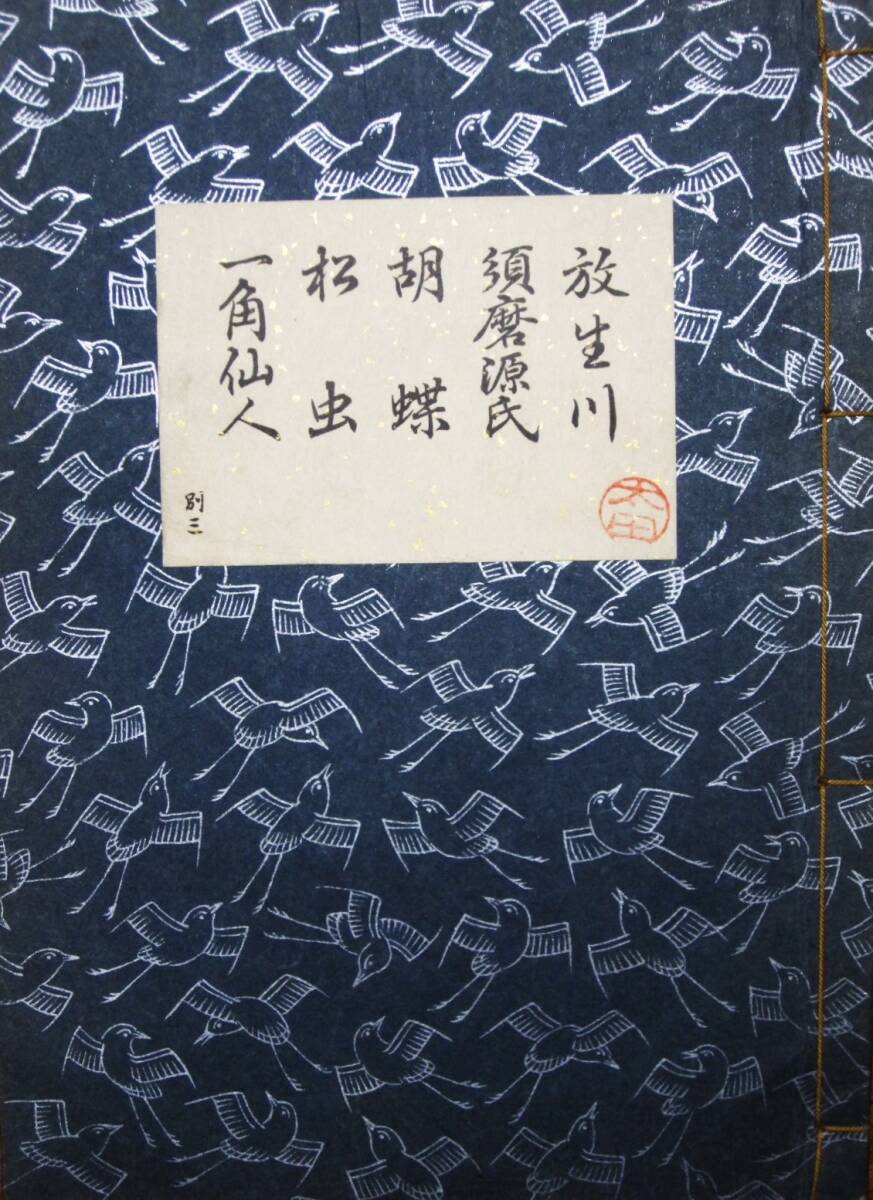 放生川
須磨源氏
胡蝶
松虫
一角仙人
別三